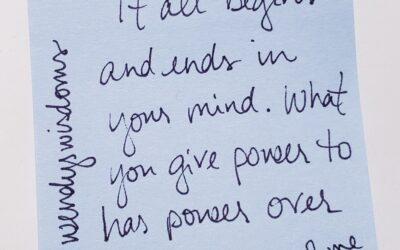 It all begins
and ends in
your mind. What
you give power to
has power over
wendyswisdoms